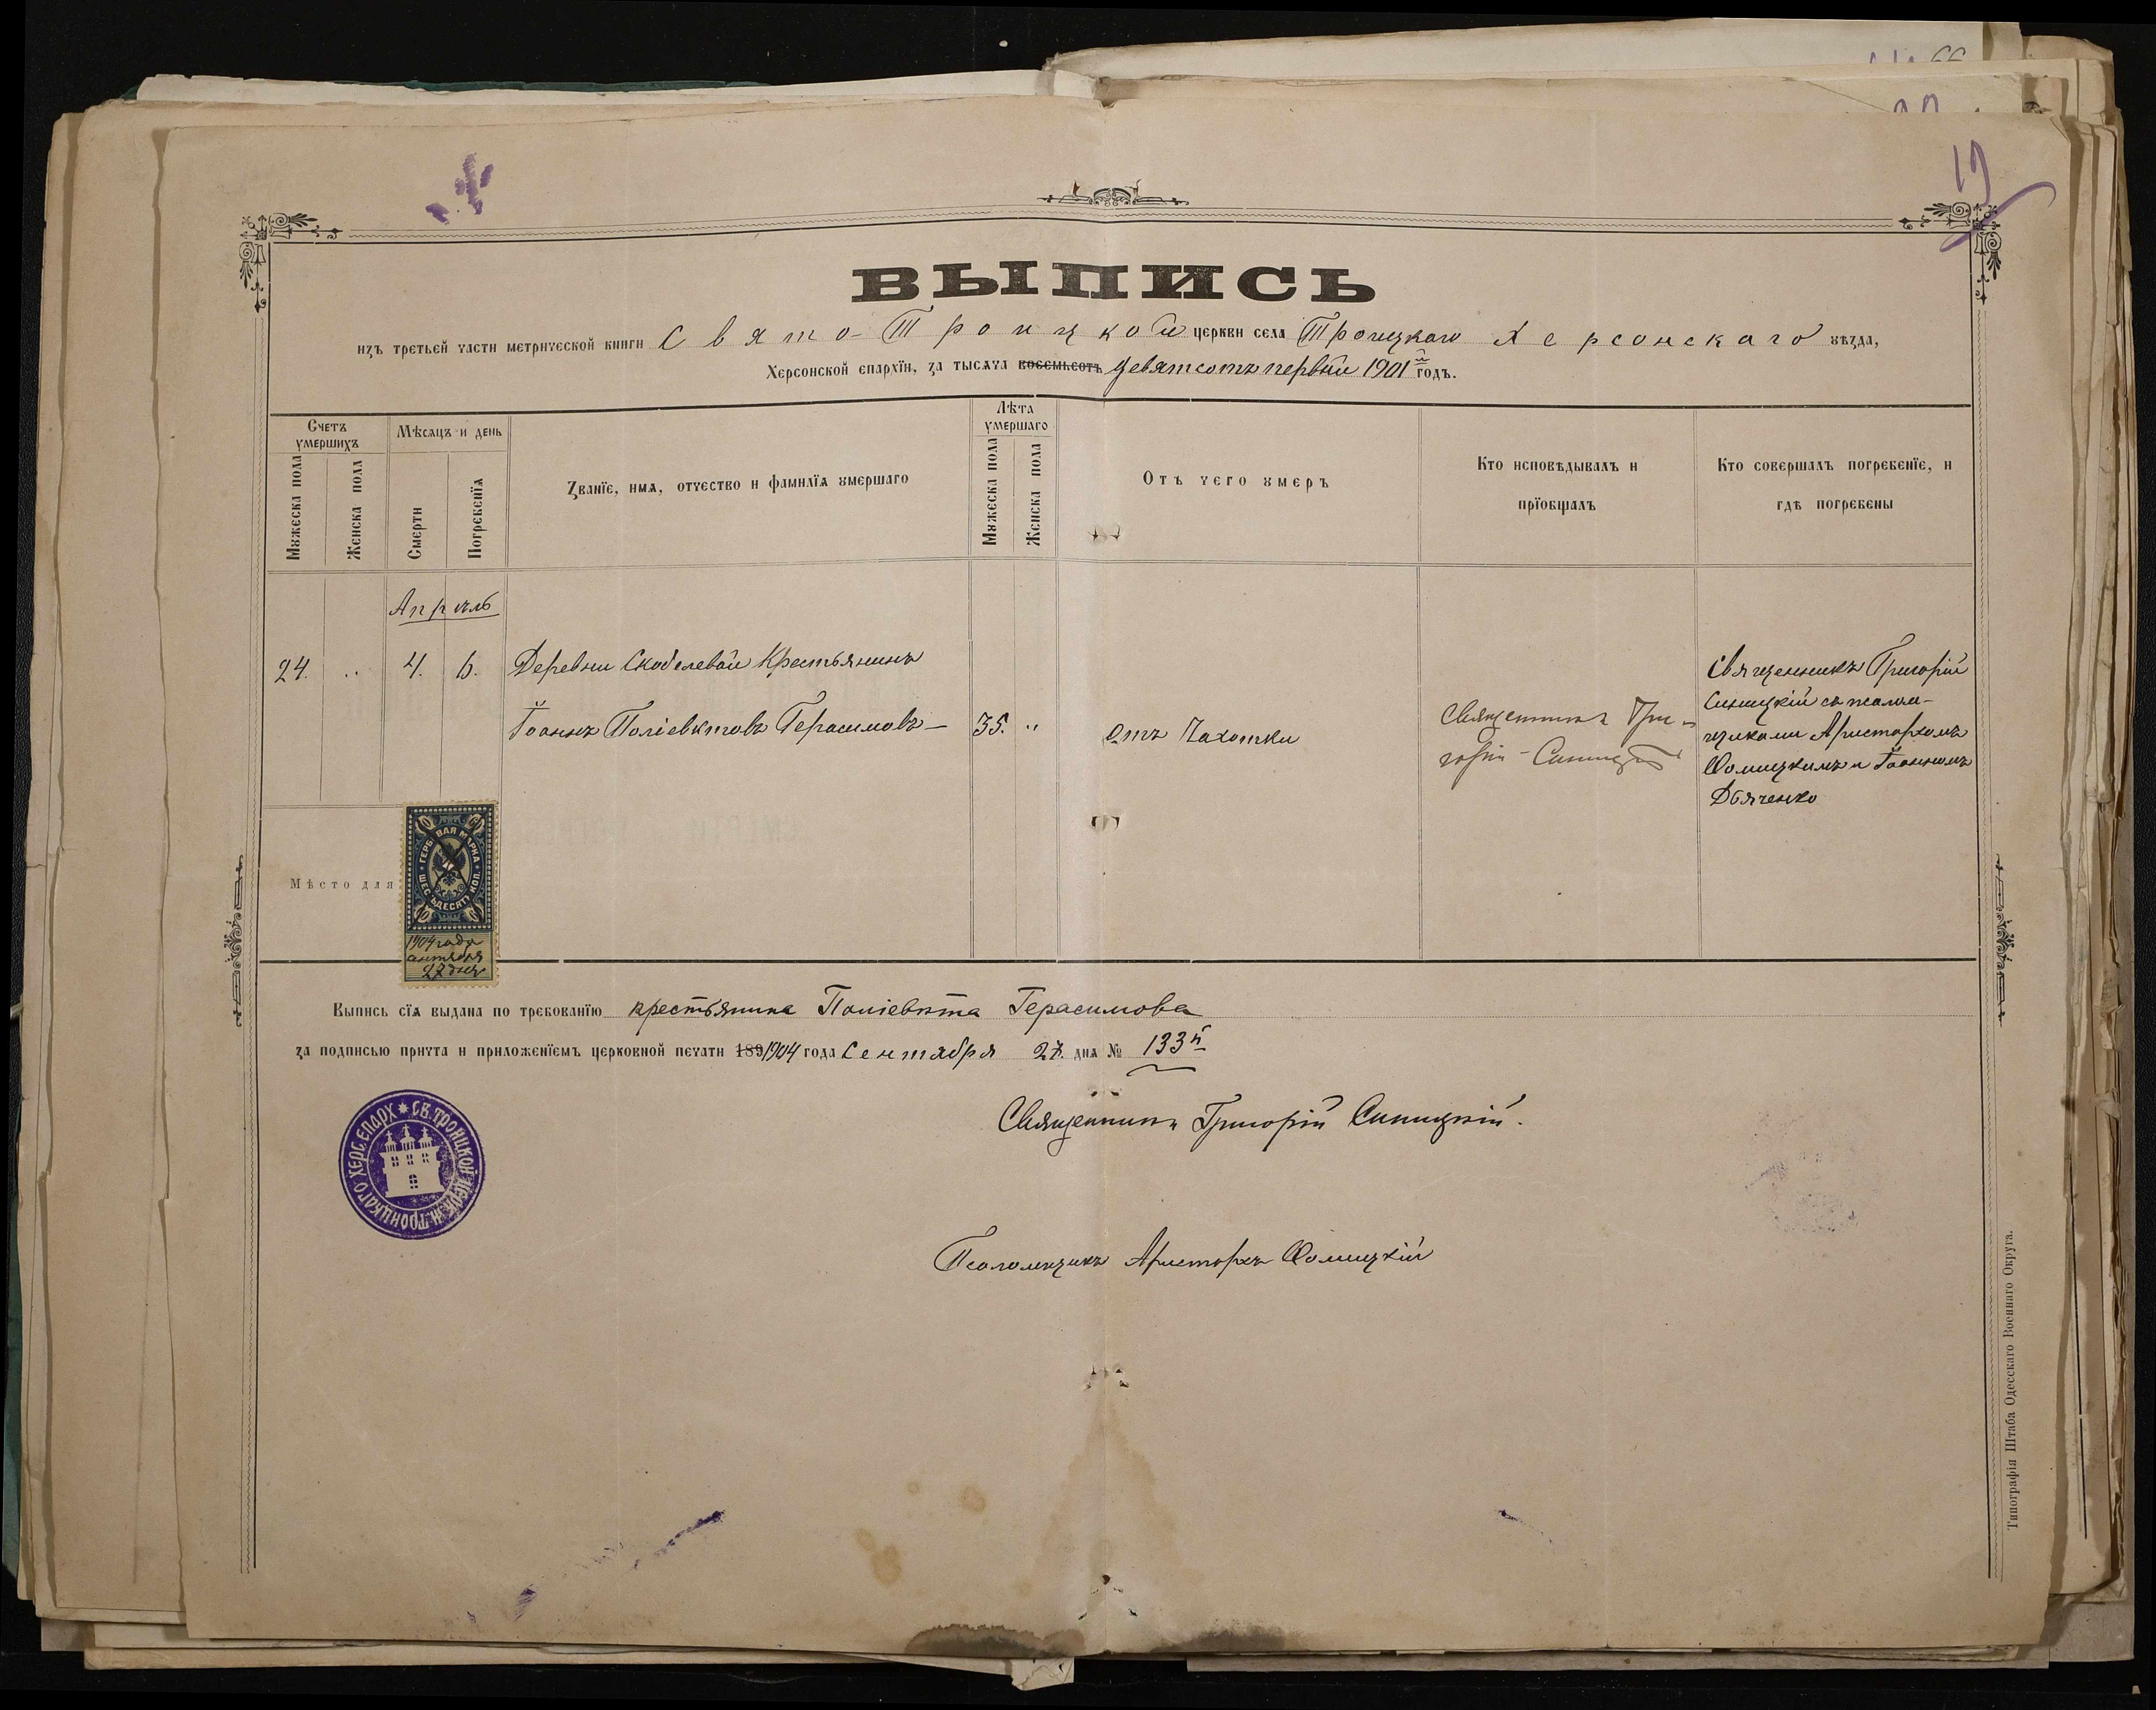 66
19
ВЫПИСЬ
изъ третьей части метрической книги Свято-Троицкой церкви села Троицкаго Херсонскаго уѣзда,
Херсонской епархїи, за тысяча восемьсотъ девятсотъ первый 1901й годъ.
Счетъ умершихъ
Мужеска пола
Женска пола
Мѣсяцъ и день
Смерти
Погребенїя
Званїе, имя, отчество и фамилїя умершаго
Лѣта умершаго
Мужеска пола
Женска пола
Отъ чего умеръ
Кто исповѣдывалъ и
прїобщалъ
Кто совершалъ погребенїе, и
гдѣ погребены
Апрѣль
24. „ 4. 6. Деревни Скобелевой Крестьянинъ
Іоаннъ Поліевктовъ Герасимовъ — 35. „
Отъ Чахотки
Священникъ Гри-
горій Синицкій
Священникъ Григорій
Синицкій съ псалом-
щиками Аристархомъ
Ѳомицкимъ и Іоанномъ
Дьяченко
Мѣсто для
ГЕРБОВАЯ МАРКА
ШЕСТЬДЕСЯТЪ КОП.
60
1904 года
сентября
27 дня
Выпись сїя выдана по требованїю крестьянина Поліевкта Герасимова
за подписью причта и приложенїемъ церковной печати 189 1904 года Сентября 27. дня № 133й
СВ. ТРОИЦКОЙ ЦЕРК. Н. ТРОИЦКАГО ХЕРС. ЕПАРХ
Священникъ Григорій Синицкій.
Псаломщикъ Аристархъ Ѳомицкій
Типографія Штаба Одесскаго Военнаго Округа.